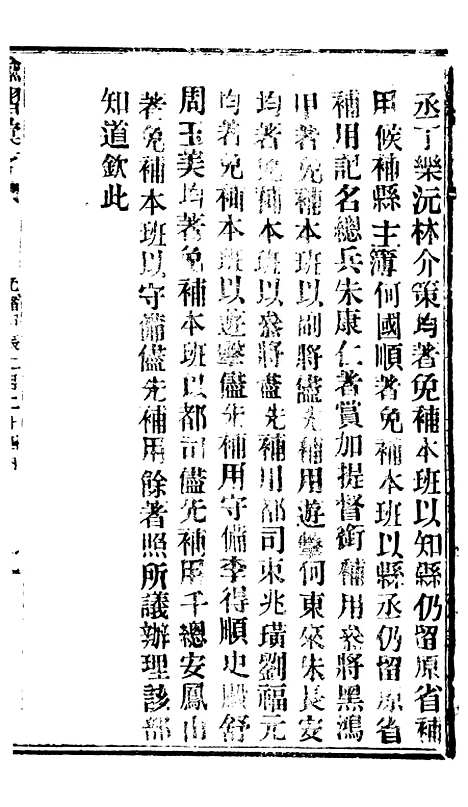 丞丁樂沅林介策均著免補本班以知縣仍留原省補
用候補縣主簿何國順著免補本班以縣丞仍留原省
補用記名總兵朱康仁著賞加提督銜補用叅將黑鴻
甲著免補本班以副將儘先補用遊擊何東來朱長安
均著免補本班以叅將儘先補用都司東兆璜劉福元
均著免補本班以遊擊儘先補用守備李得順史殿舒
周玉美均著免補本班以都司儘先補用千總安鳳山
著免補本班以守備儘先補用餘著照所議辦理該部
知道欽此
諭摺彙存
二月二十四日